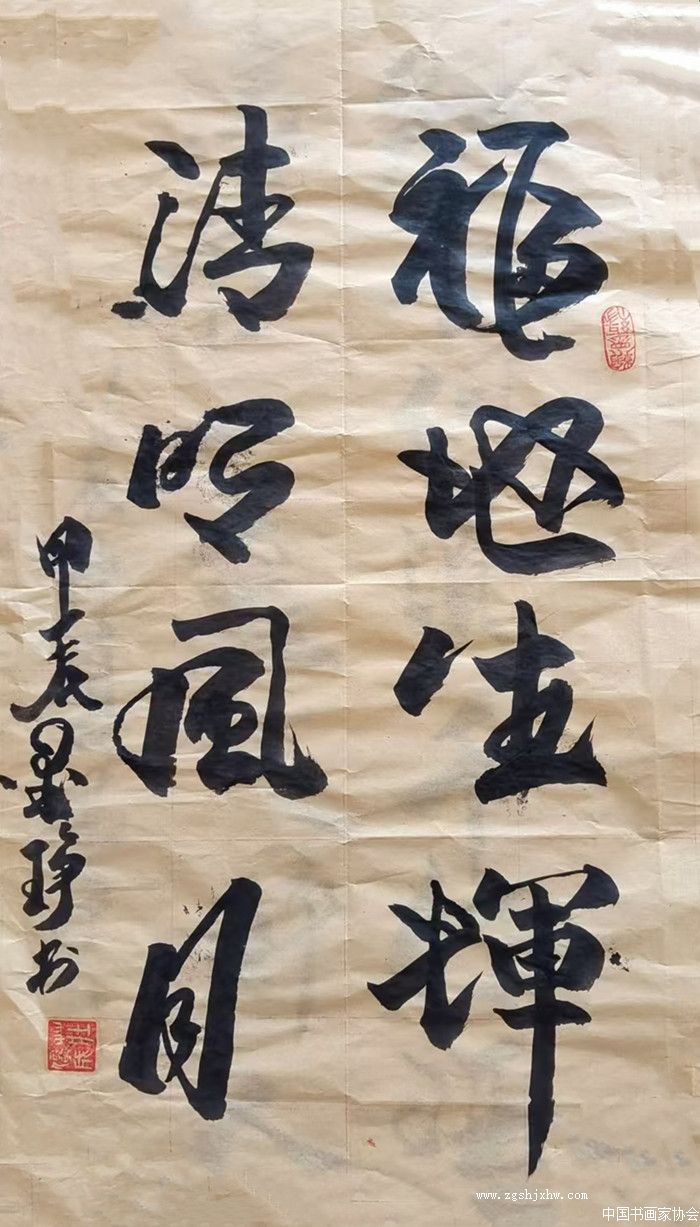 福地生輝
清明風月
甲辰墨琤书
www.zgshjxhw.com
中国书画家协会